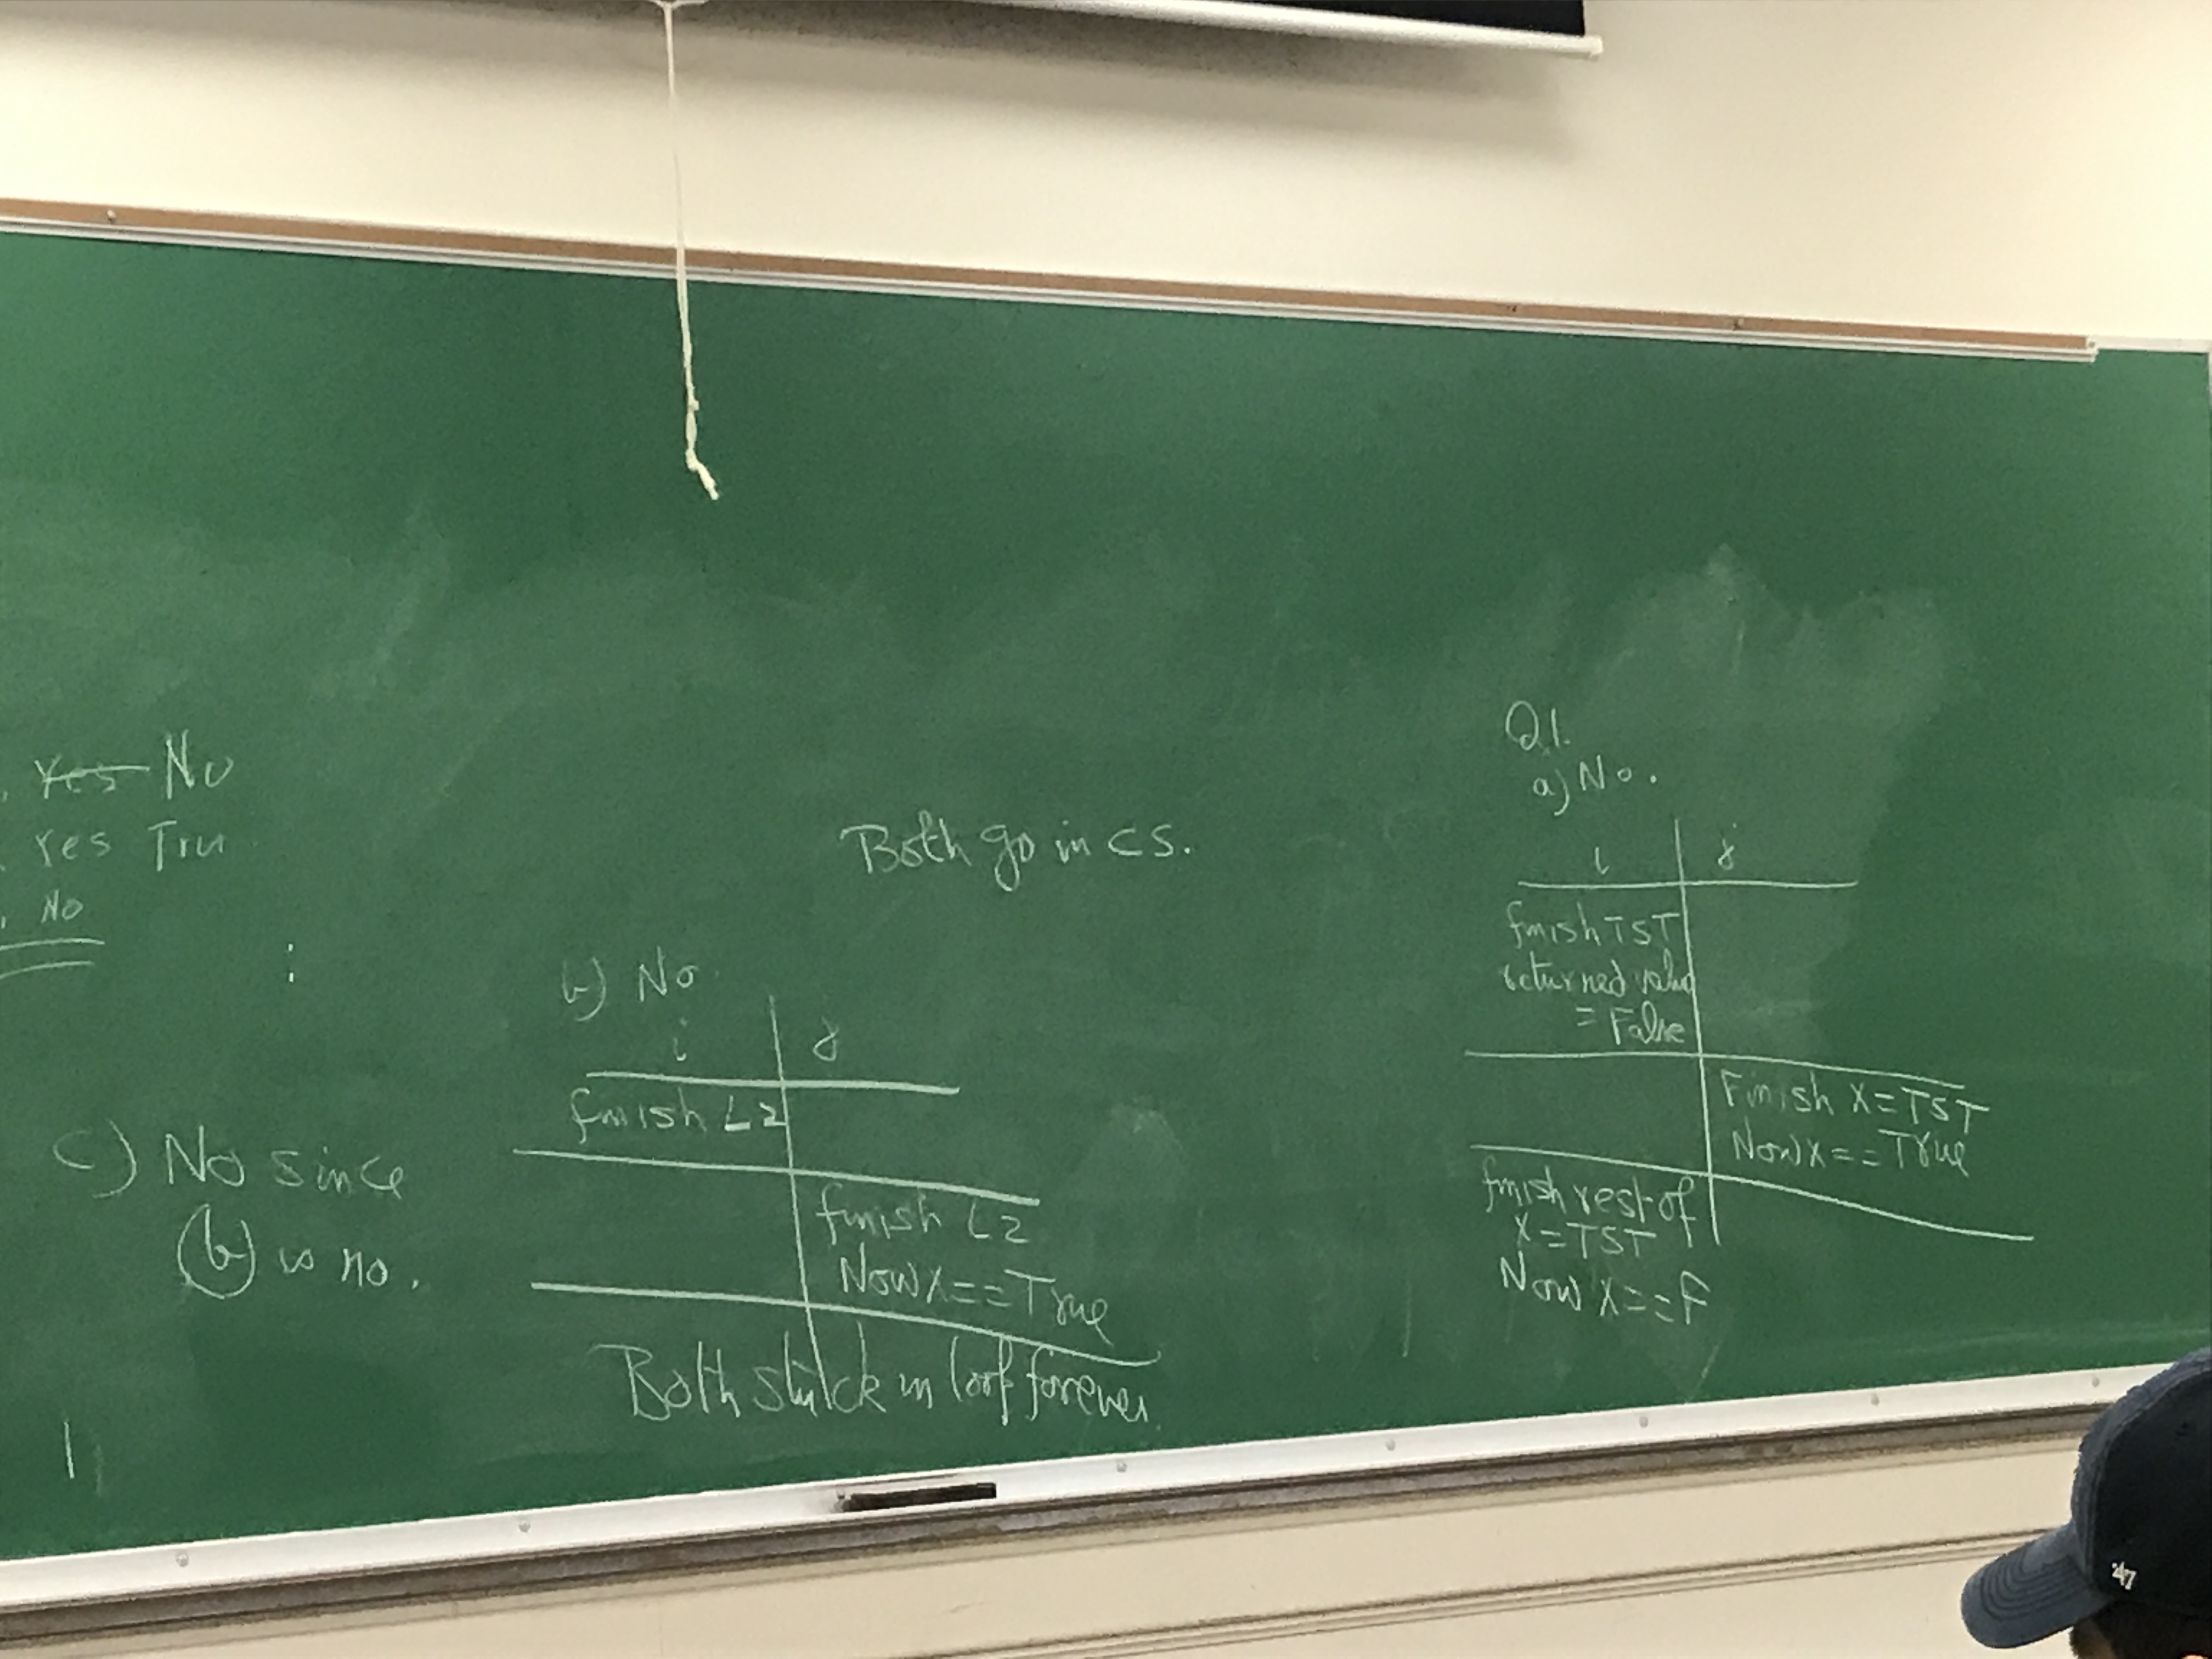 Yes No
Yes Tru
No
C) No since
(b) is no.
Both go in CS.
b) No
i j
finish L2
finish L2
Now X==True
Both stuck in loop forever.
Q1.
a) No.
i j
finish TST
returned value
= False
Finish X=TST
Now X==True
finish rest of
X=TST
Now X==F
'47